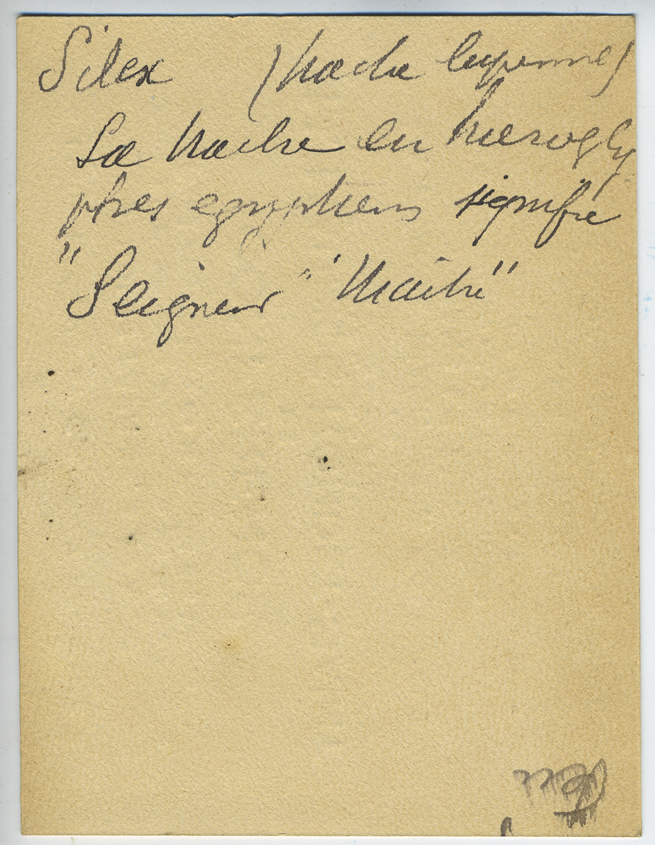 Silex (hache lupienne)
La hache en hierogly
phes egyptiens signifie
"Seigneur" "Maitre"